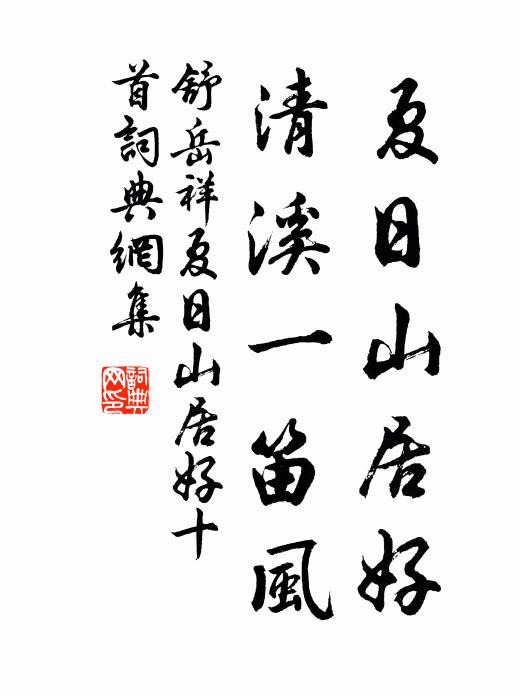 夏日山居好
清溪一笛風
舒岳祥夏日山居好十
首詞典網集
詞典
网印